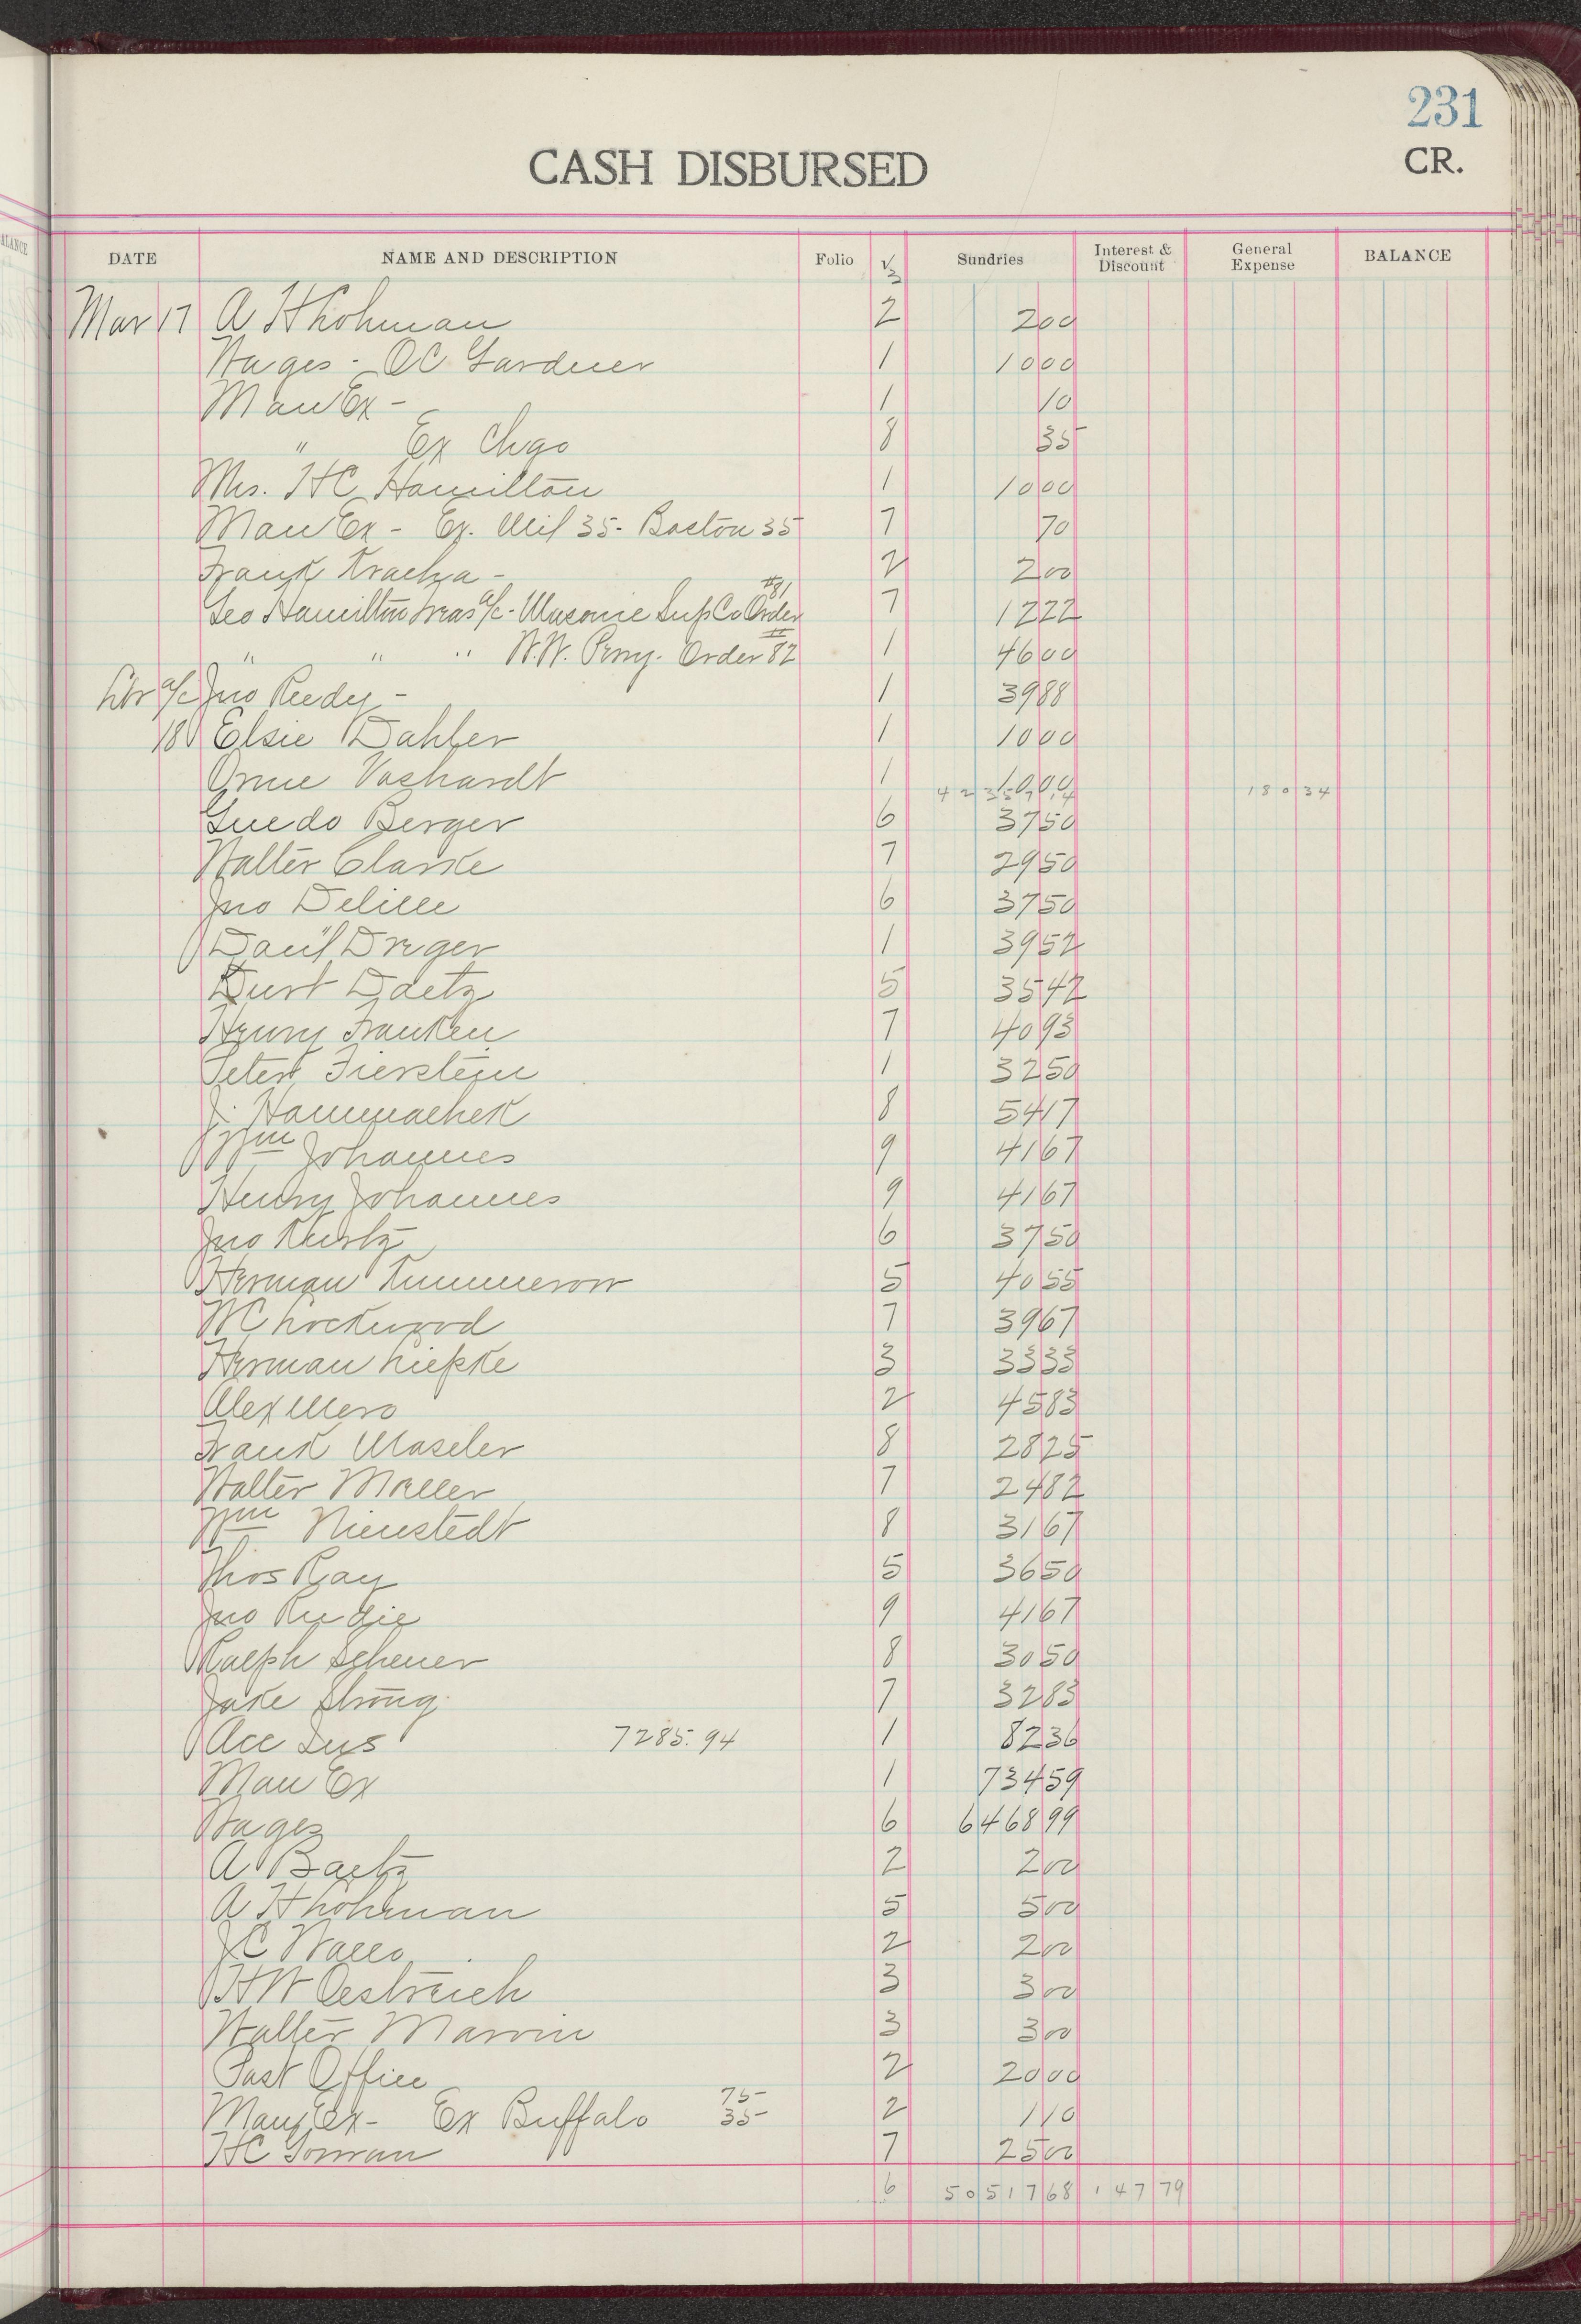 231
CASH DISBURSED CR.
ALANCE
DATE NAME AND DESCRIPTION Folio √3 Sundries Interest & Discount General Expense BALANCE
Mar 17 A H Lohman 2 200
Wages - OC Gardner 1 1000
Man Ex - 1 10
" Ex Chgo 8 35
Mrs. HC Hamilton 1 1000
Man Ex - Ex. Mil 35- Boston 35 7 70
Frank Kracha - 2 200
Geo Hamilton Treas a/c - Masonic Sup Co Order #81 7 1222
" " " W.W. Perry. Order #82 1 4600
Lbr a/c Jno Reedy - 1 3988
18 Elsie Dahler 1 1000
Orme Vashardt 1 1000
18034
Guedo Berger 6 3750
Walter Clarke 7 2950
Jno Delille 6 3750
Dan'l Dreger 1 3952
Curt Daetz 5 3542
Henry Franken 7 4093
Peter Fierstein 1 3250
J. Hammachek 8 5417
Wm Johannes 9 4167
Henry Johannes 9 4167
Jno Kurtz 6 3750
Herman Kummerow 5 4055
WC Lockwood 7 3967
Herman Liepke 3 3333
Alex Mero 2 4583
Frank Maseler 8 2825
Walter Moeller 7 2482
Wm Nienstedt 8 3167
Thos Ray 5 3650
Jno Rudie 9 4167
Ralph Scheuer 8 3050
Jake Strong 7 3283
Acc Sys 7285.94 1 8236
Man Ex 1 73459
Wages 6 646899
A Baetz 2 200
A H Lohman 5 500
JC Wallo 2 200
HW Oestreich 3 300
Walter Marvin 3 300
Post Office 2 2000
Man Ex - Ex Buffalo 75- 35- 2 110
HC Gorman 7 2500
6 5051768 14779